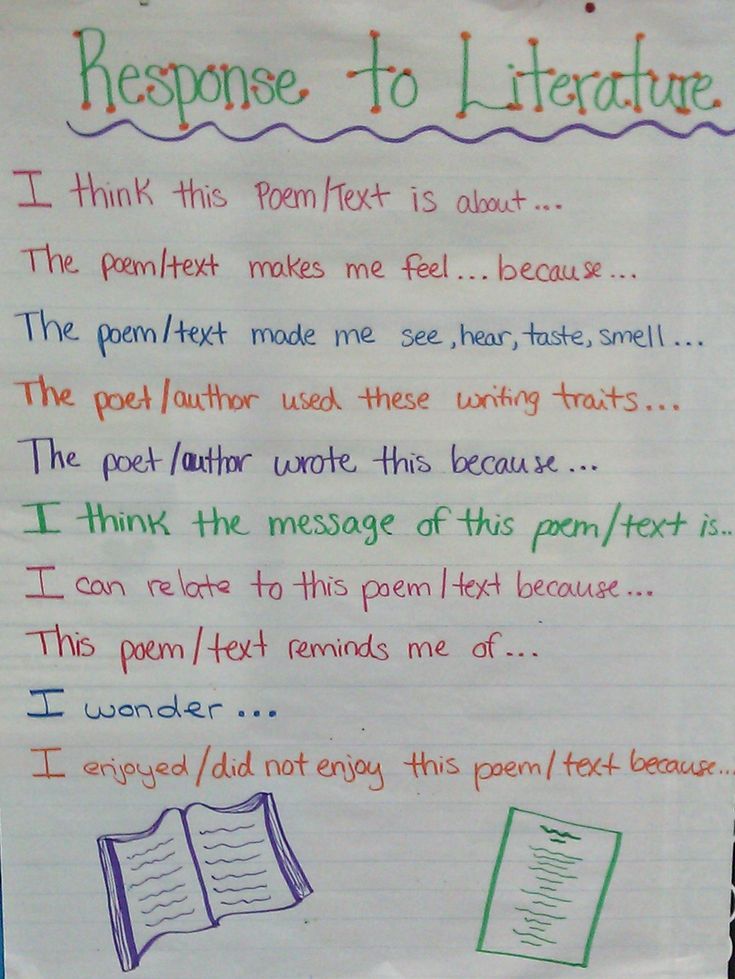 Response to Literature
I think this Poem/Text is about...
The poem/text makes me feel... because...
The poem/text made me see, hear, taste, smell...
The poet/author used these writing traits...
The poet/author wrote this because...
I think the message of this poem/text is...
I can relate to this poem/text because...
This poem/text reminds me of...
I wonder...
I enjoyed/did not enjoy this poem/text because...